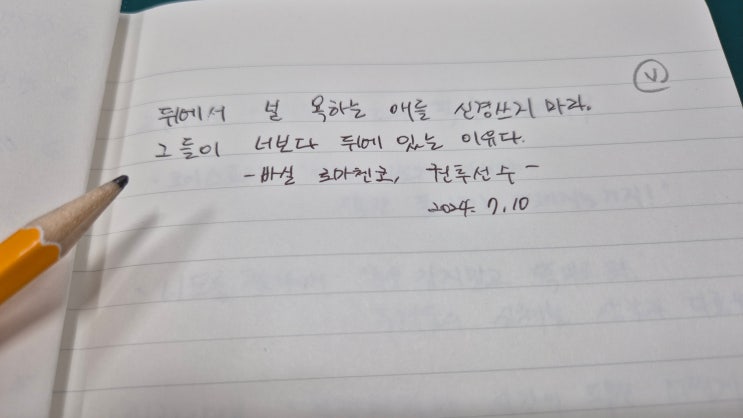 V
뒤에서 널 욕하는 애를 신경쓰지 마라.
그들이 너보다 뒤에 있는 이유다.
-바실 로마첸코, 권투선수-
2024. 7. 10